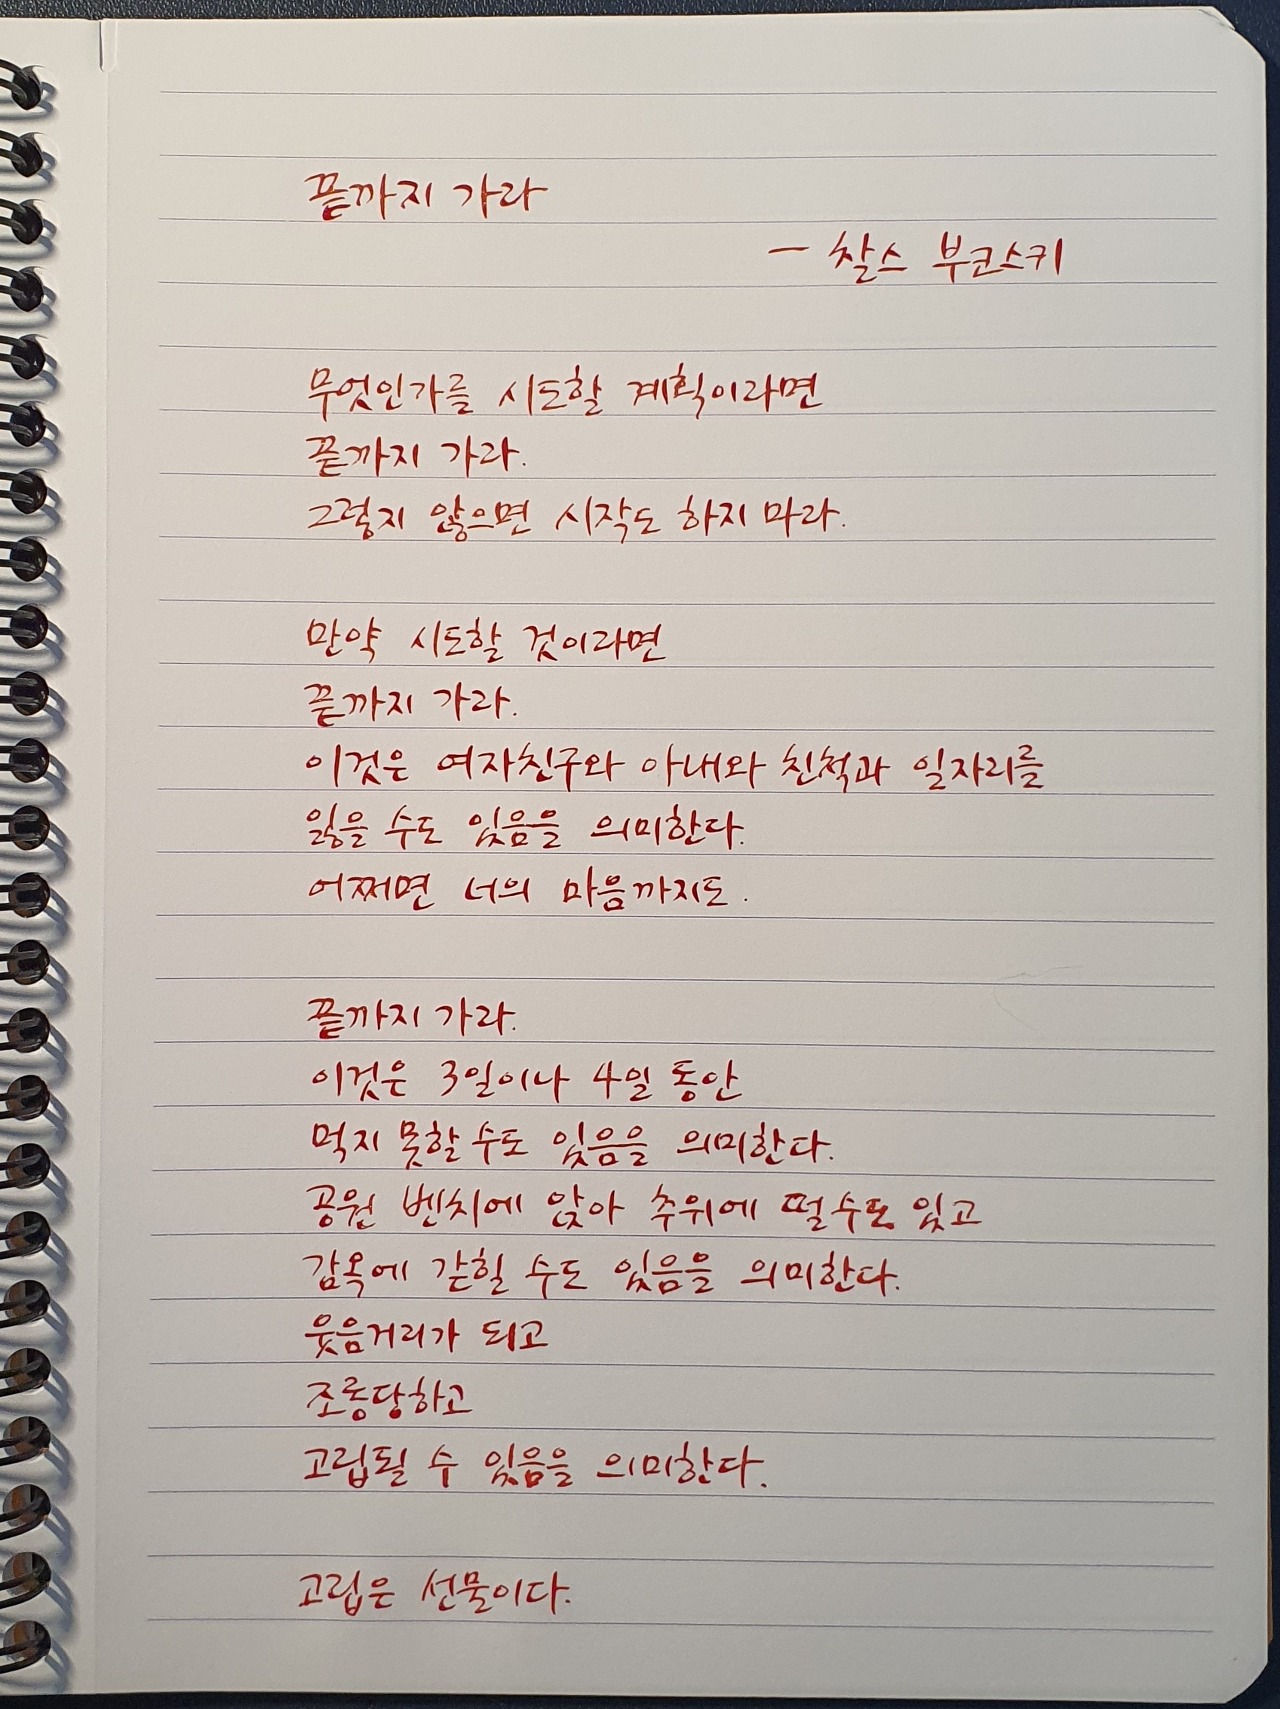 끝까지 가라
- 찰스 부코스키
무엇인가를 시도할 계획이라면
끝까지 가라.
그렇지 않으면 시작도 하지 마라.
만약 시도할 것이라면
끝까지 가라.
이것은 여자친구와 아내와 친척과 일자리를
잃을 수도 있음을 의미한다.
어쩌면 너의 마음까지도.
끝까지 가라.
이것은 3일이나 4일 동안
먹지 못할 수도 있음을 의미한다.
공원 벤치에 앉아 추위에 떨 수도 있고
감옥에 갇힐 수도 있음을 의미한다.
웃음거리가 되고
조롱당하고
고립될 수 있음을 의미한다.
고립은 선물이다.